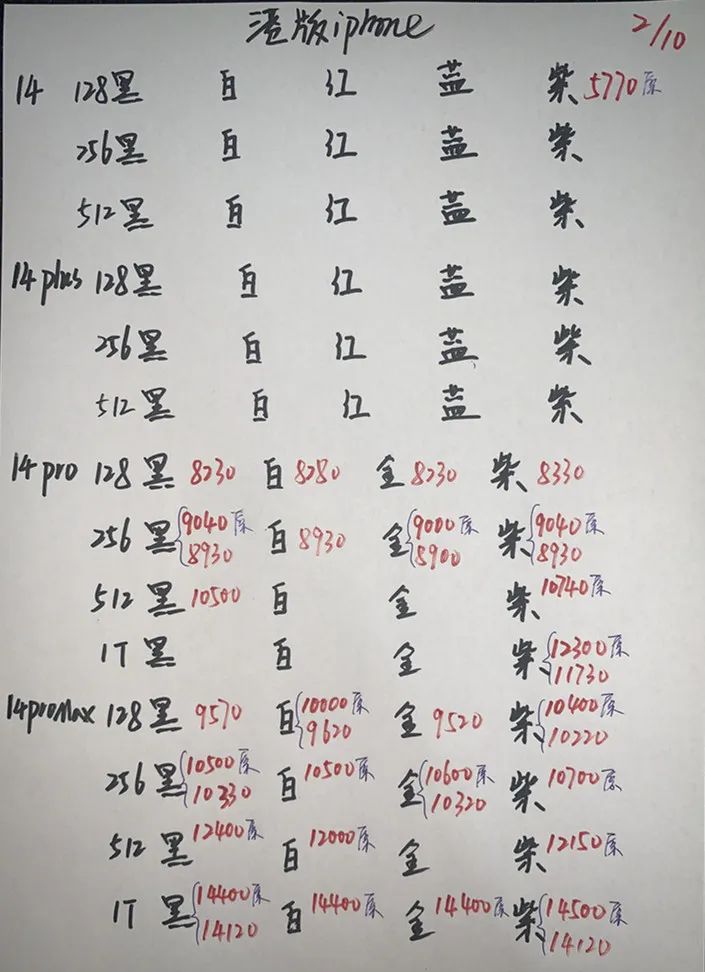 港版iphone 2/10
14 128黑 白 红 蓝 紫 5770原
256黑 白 红 蓝 紫
512黑 白 红 蓝 紫
14plus 128黑 白 红 蓝 紫
256黑 白 红 蓝 紫
512黑 白 红 蓝 紫
14pro 128黑 8230 白 8280 金 8230 紫 8330
256黑 9040原 8930 白 8930 金 9000原 8900 紫 9040原 8930
512黑 10500 白 金 紫 10740原
1T 黑 白 金 紫 12300原 11730
14proMax 128黑 9570 白 10000原 9620 金 9520 紫 10400原 10220
256黑 10500原 10330 白 10500原 金 10600原 10320 紫 10700原
512黑 12400原 白 12000原 金 紫 12150原
1T 黑 14400原 14120 白 14400原 金 14400原 紫 14500原 14120